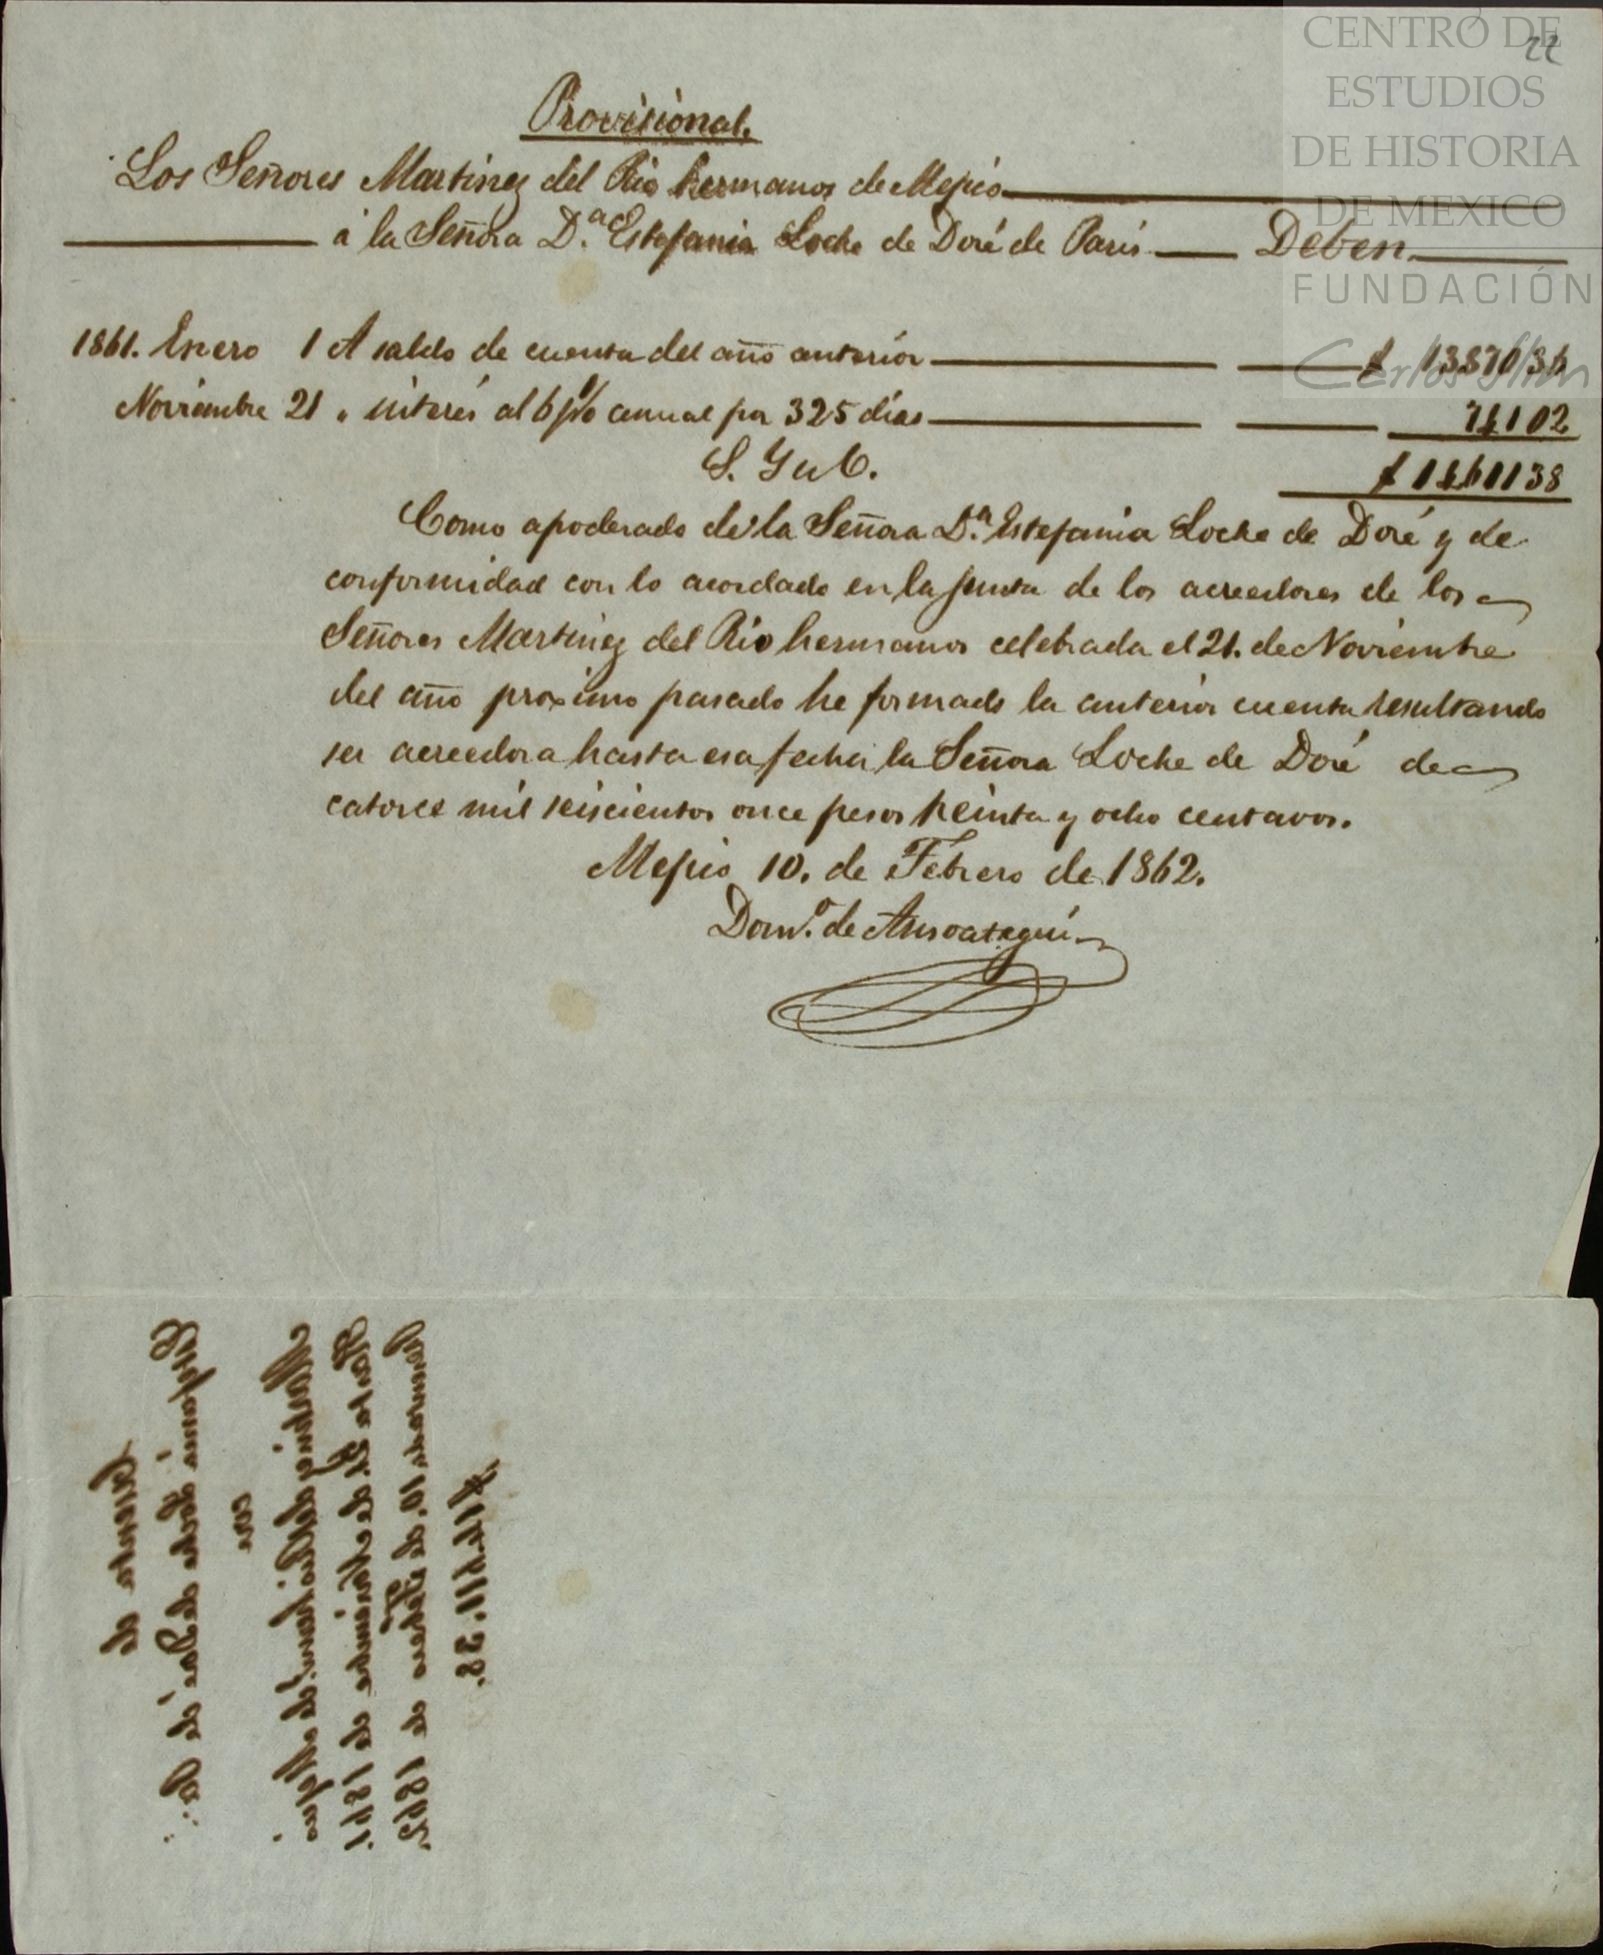 CENTRO DE
ESTUDIOS
DE HISTORIA
DE MEXICO
FUNDACIÓN
Carlos Slim
22
Provisional.
Los Señores Martinez del Rio hermanos de Mejico
á la Señora D.ª Estefania Loche de Doré de Paris Deben
1861. Enero 1 A saldo de cuenta del año anterior $ 13870 36
Noviembre 21 " interés al 6 p% anual por 325 días 741 02
S. Y u O. $ 14611 38
Como apoderado de la Señora D.ª Estefania Loche de Doré y de
conformidad con lo acordado en la junta de los acreedores de los
Señores Martinez del Rio hermanos celebrada el 21. de Noviembre
del año proximo pasado he formado la anterior cuenta resultando
ser acreedora hasta esa fecha la Señora Loche de Doré de
catorce mil seiscientos once pesos treinta y ocho centavos.
Mejico 10. de Febrero de 1862.
Dom.º de Ansoategui
Cuenta de
Estefania Loche de Doré de
con
Martinez del Rio herm.s de Mejico
Hasta 21. de Noviembre de 1861.
10. de Febrero de 1862
$ 14.611.38.